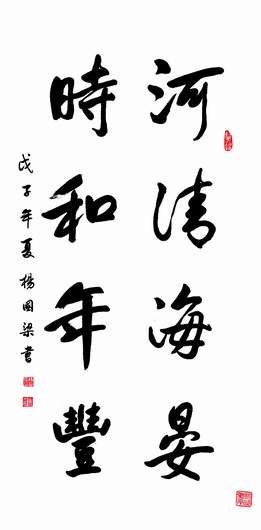 河清海晏
時和年豐
戊子年夏 楊國梁書